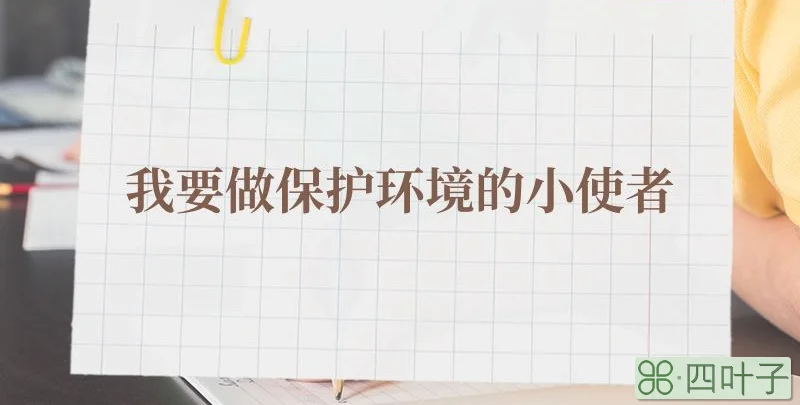 我要做保护环境的小使者
四叶子